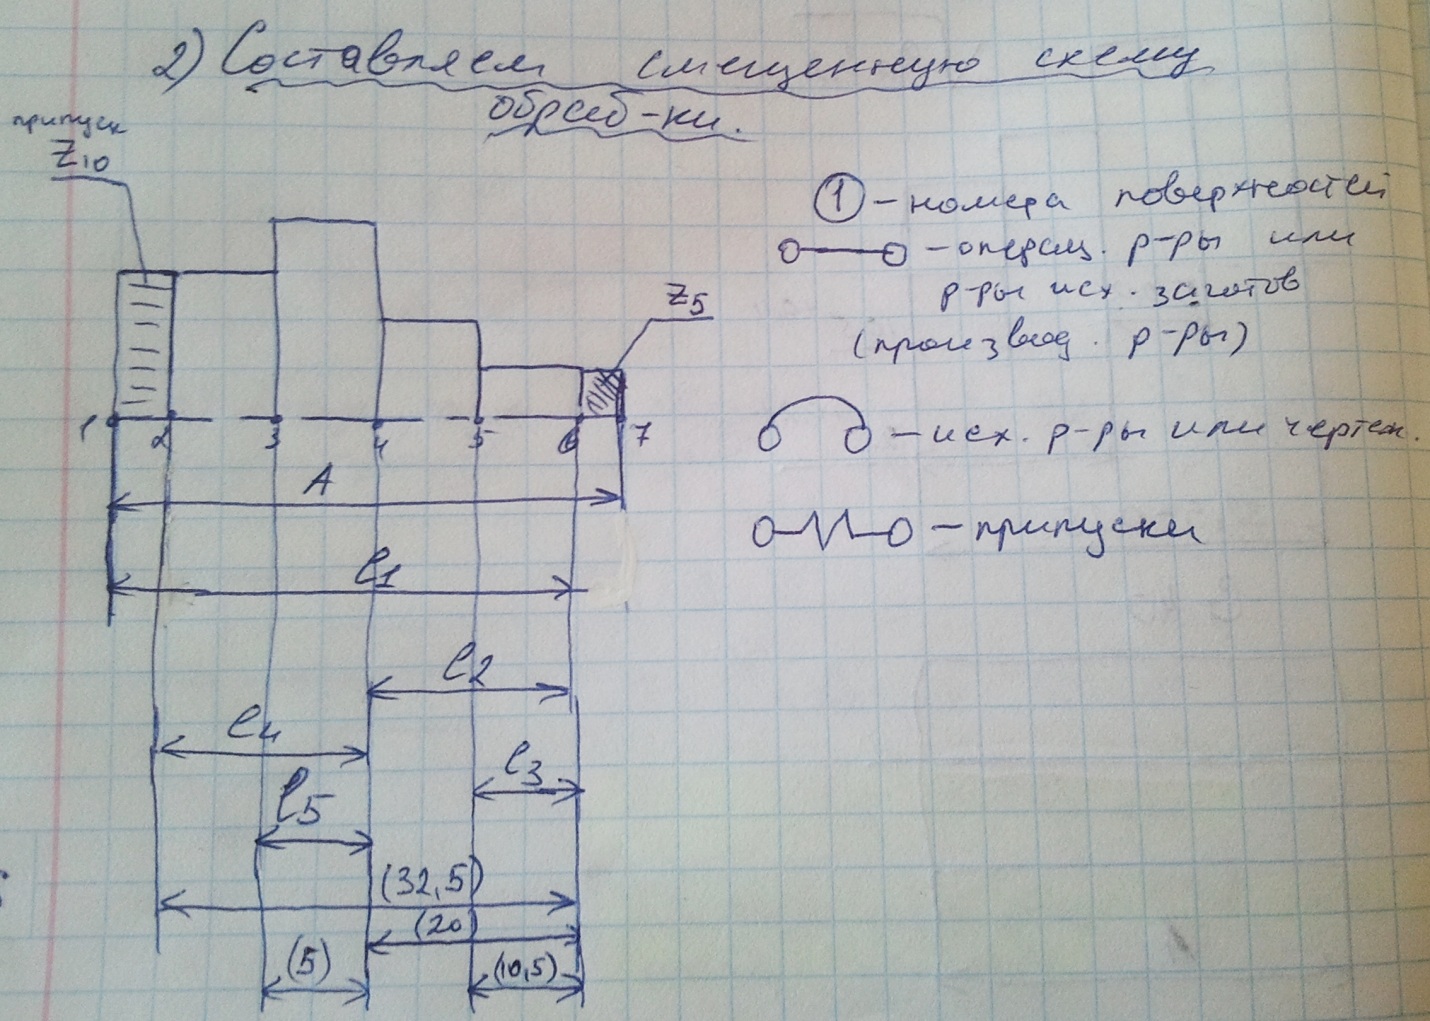 2) Составляем смещенную схему
обраб-ки.
припуск
Z10
① - номера поверхностей
- операц. р-ры или
р-ры исх. заготов
(производ. р-ры)
Z5
1 2 3 4 5 6 7
- исх. р-ры или чертеж.
A
- припуски
l1
l2
l4
l3
l5
(32,5)
(20)
(5) (10,5)